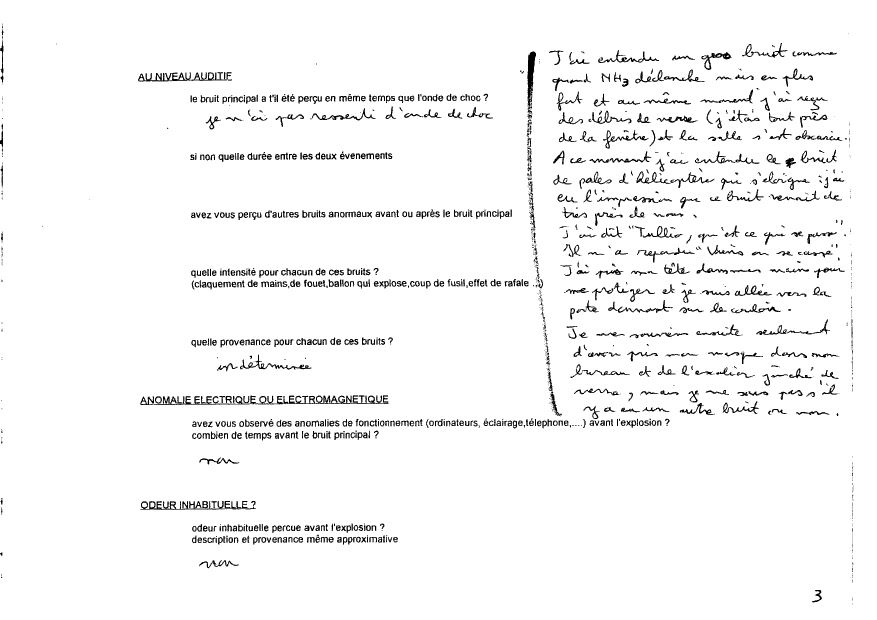 AU NIVEAU AUDITIF
le bruit principal a t'il été perçu en même temps que l'onde de choc ?
je n'ai pas ressenti d'onde de choc
si non quelle durée entre les deux évenements
avez vous perçu d'autres bruits anormaux avant ou après le bruit principal
quelle intensité pour chacun de ces bruits ?
(claquement de mains,de fouet,ballon qui explose,coup de fusil,effet de rafale ...)
quelle provenance pour chacun de ces bruits ?
indéterminée
J'ai entendu un gros bruit comme
quand NH3 déclanche mais en plus
fort et au même moment j'ai reçu
des débris de verre (j'étais tout près
de la fenêtre) et la salle s'est obscurcie.
A ce moment j'ai entendu le bruit
de pales d'hélicoptère qui s'eloigne : j'ai
eu l'impression que ce bruit venait de
très près de nous.
J'ai dit "Tullio, qu'est ce qui se passe".
Il m'a repondu "Viens on se casse"
J'ai pris ma tête dans mes mains pour
me protéger et je suis allée vers la
porte donnant sur le couloir.
Je me souviens ensuite seulement
d'avoir pris mon masque dans mon
bureau et de l'escalier jonché de
verre, mais je ne sais pas s'il
y a eu un autre bruit ou non.
ANOMALIE ELECTRIQUE OU ELECTROMAGNETIQUE
avez vous observé des anomalies de fonctionnement (ordinateurs, éclairage,téléphone,....) avant l'explosion ?
combien de temps avant le bruit principal ?
non
ODEUR INHABITUELLE ?
odeur inhabituelle percue avant l'explosion ?
description et provenance même approximative
non
3